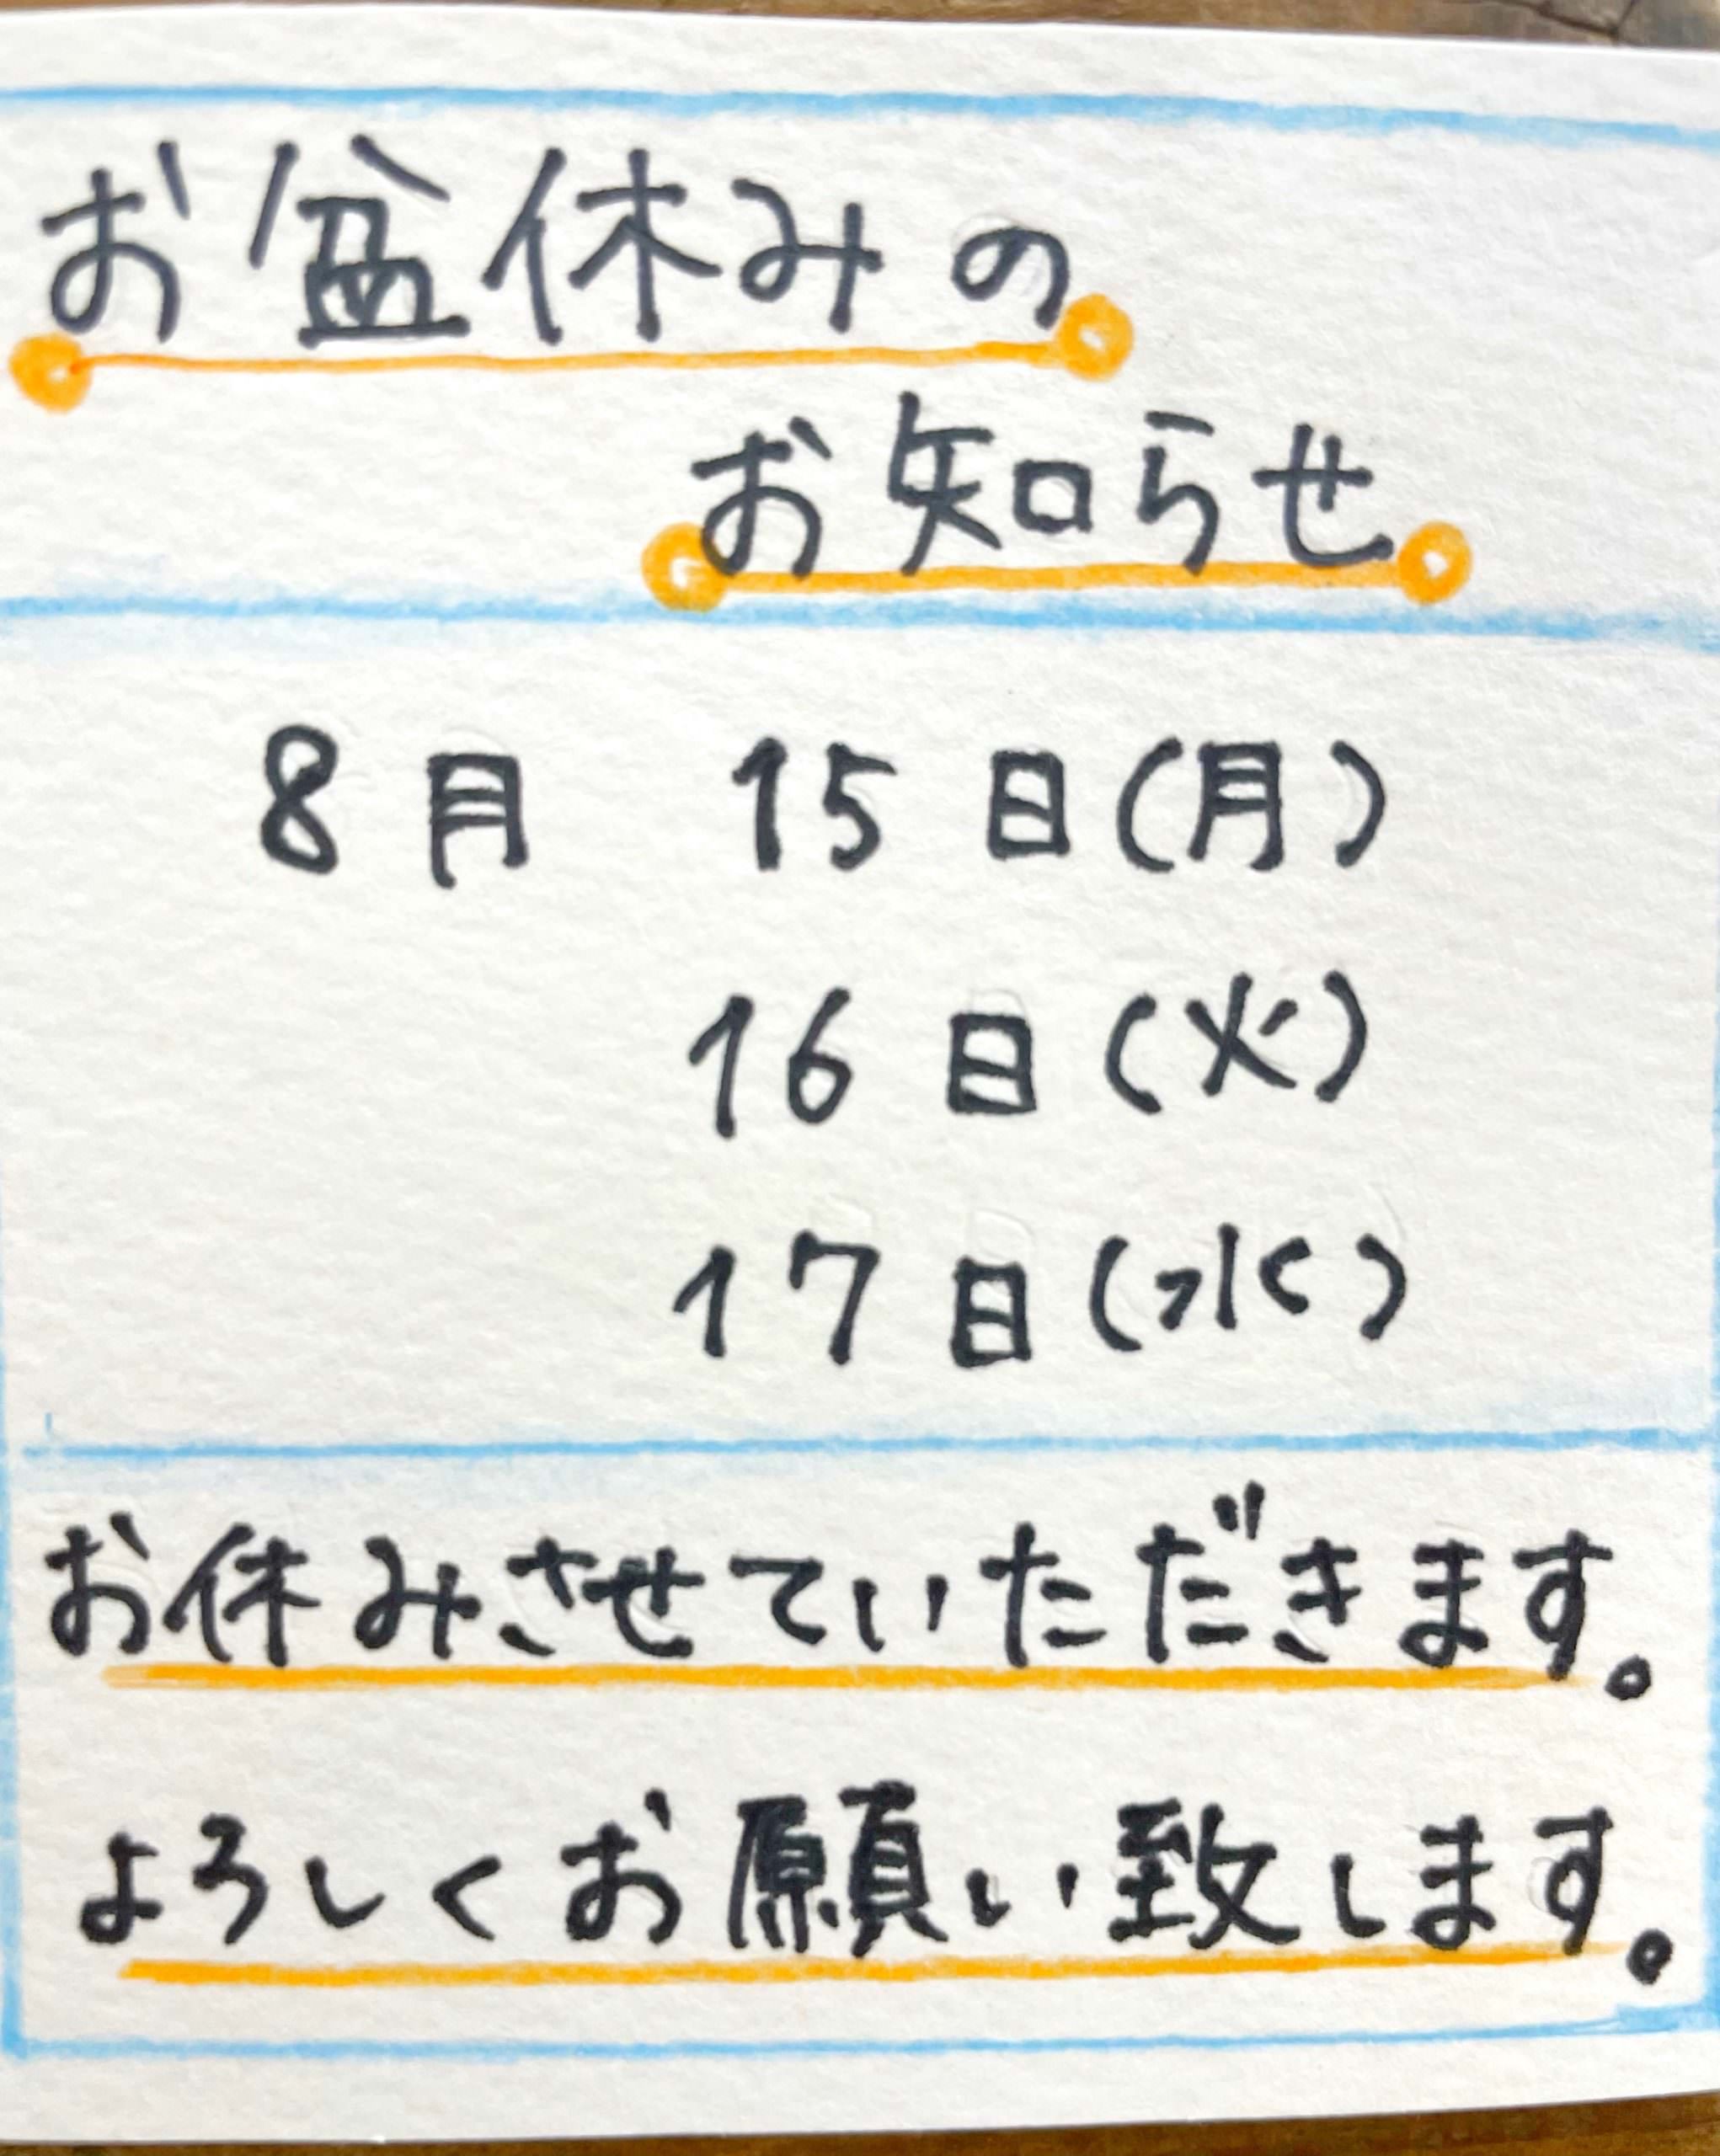 お盆休みの
お知らせ
8月 15日(月)
16日(火)
17日(水)
お休みさせていただきます。
よろしくお願い致します。